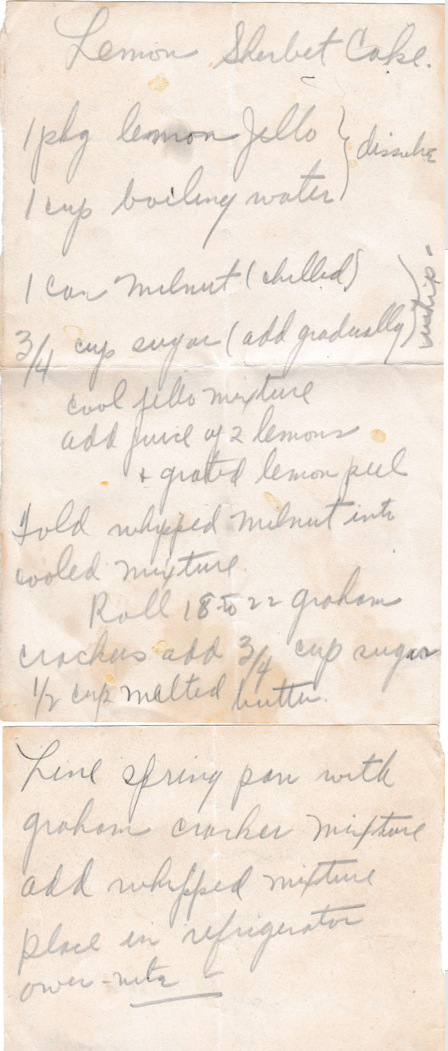 Lemon Sherbet Cake.
1 pkg lemon Jello } dissolve
1 cup boiling water
1 can Milnut (chilled) } whip -
3/4 cup sugar (add gradually)
cool jello mixture
add juice of 2 lemons
+ grated lemon peel
Fold whipped milnut into
cooled mixture.
Roll 18 to 22 graham
crackers add 3/4 cup sugar
1/2 cup malted butter.
Line spring pan with
graham cracker mixture
add whipped mixture
place in refrigerator
over-nite -